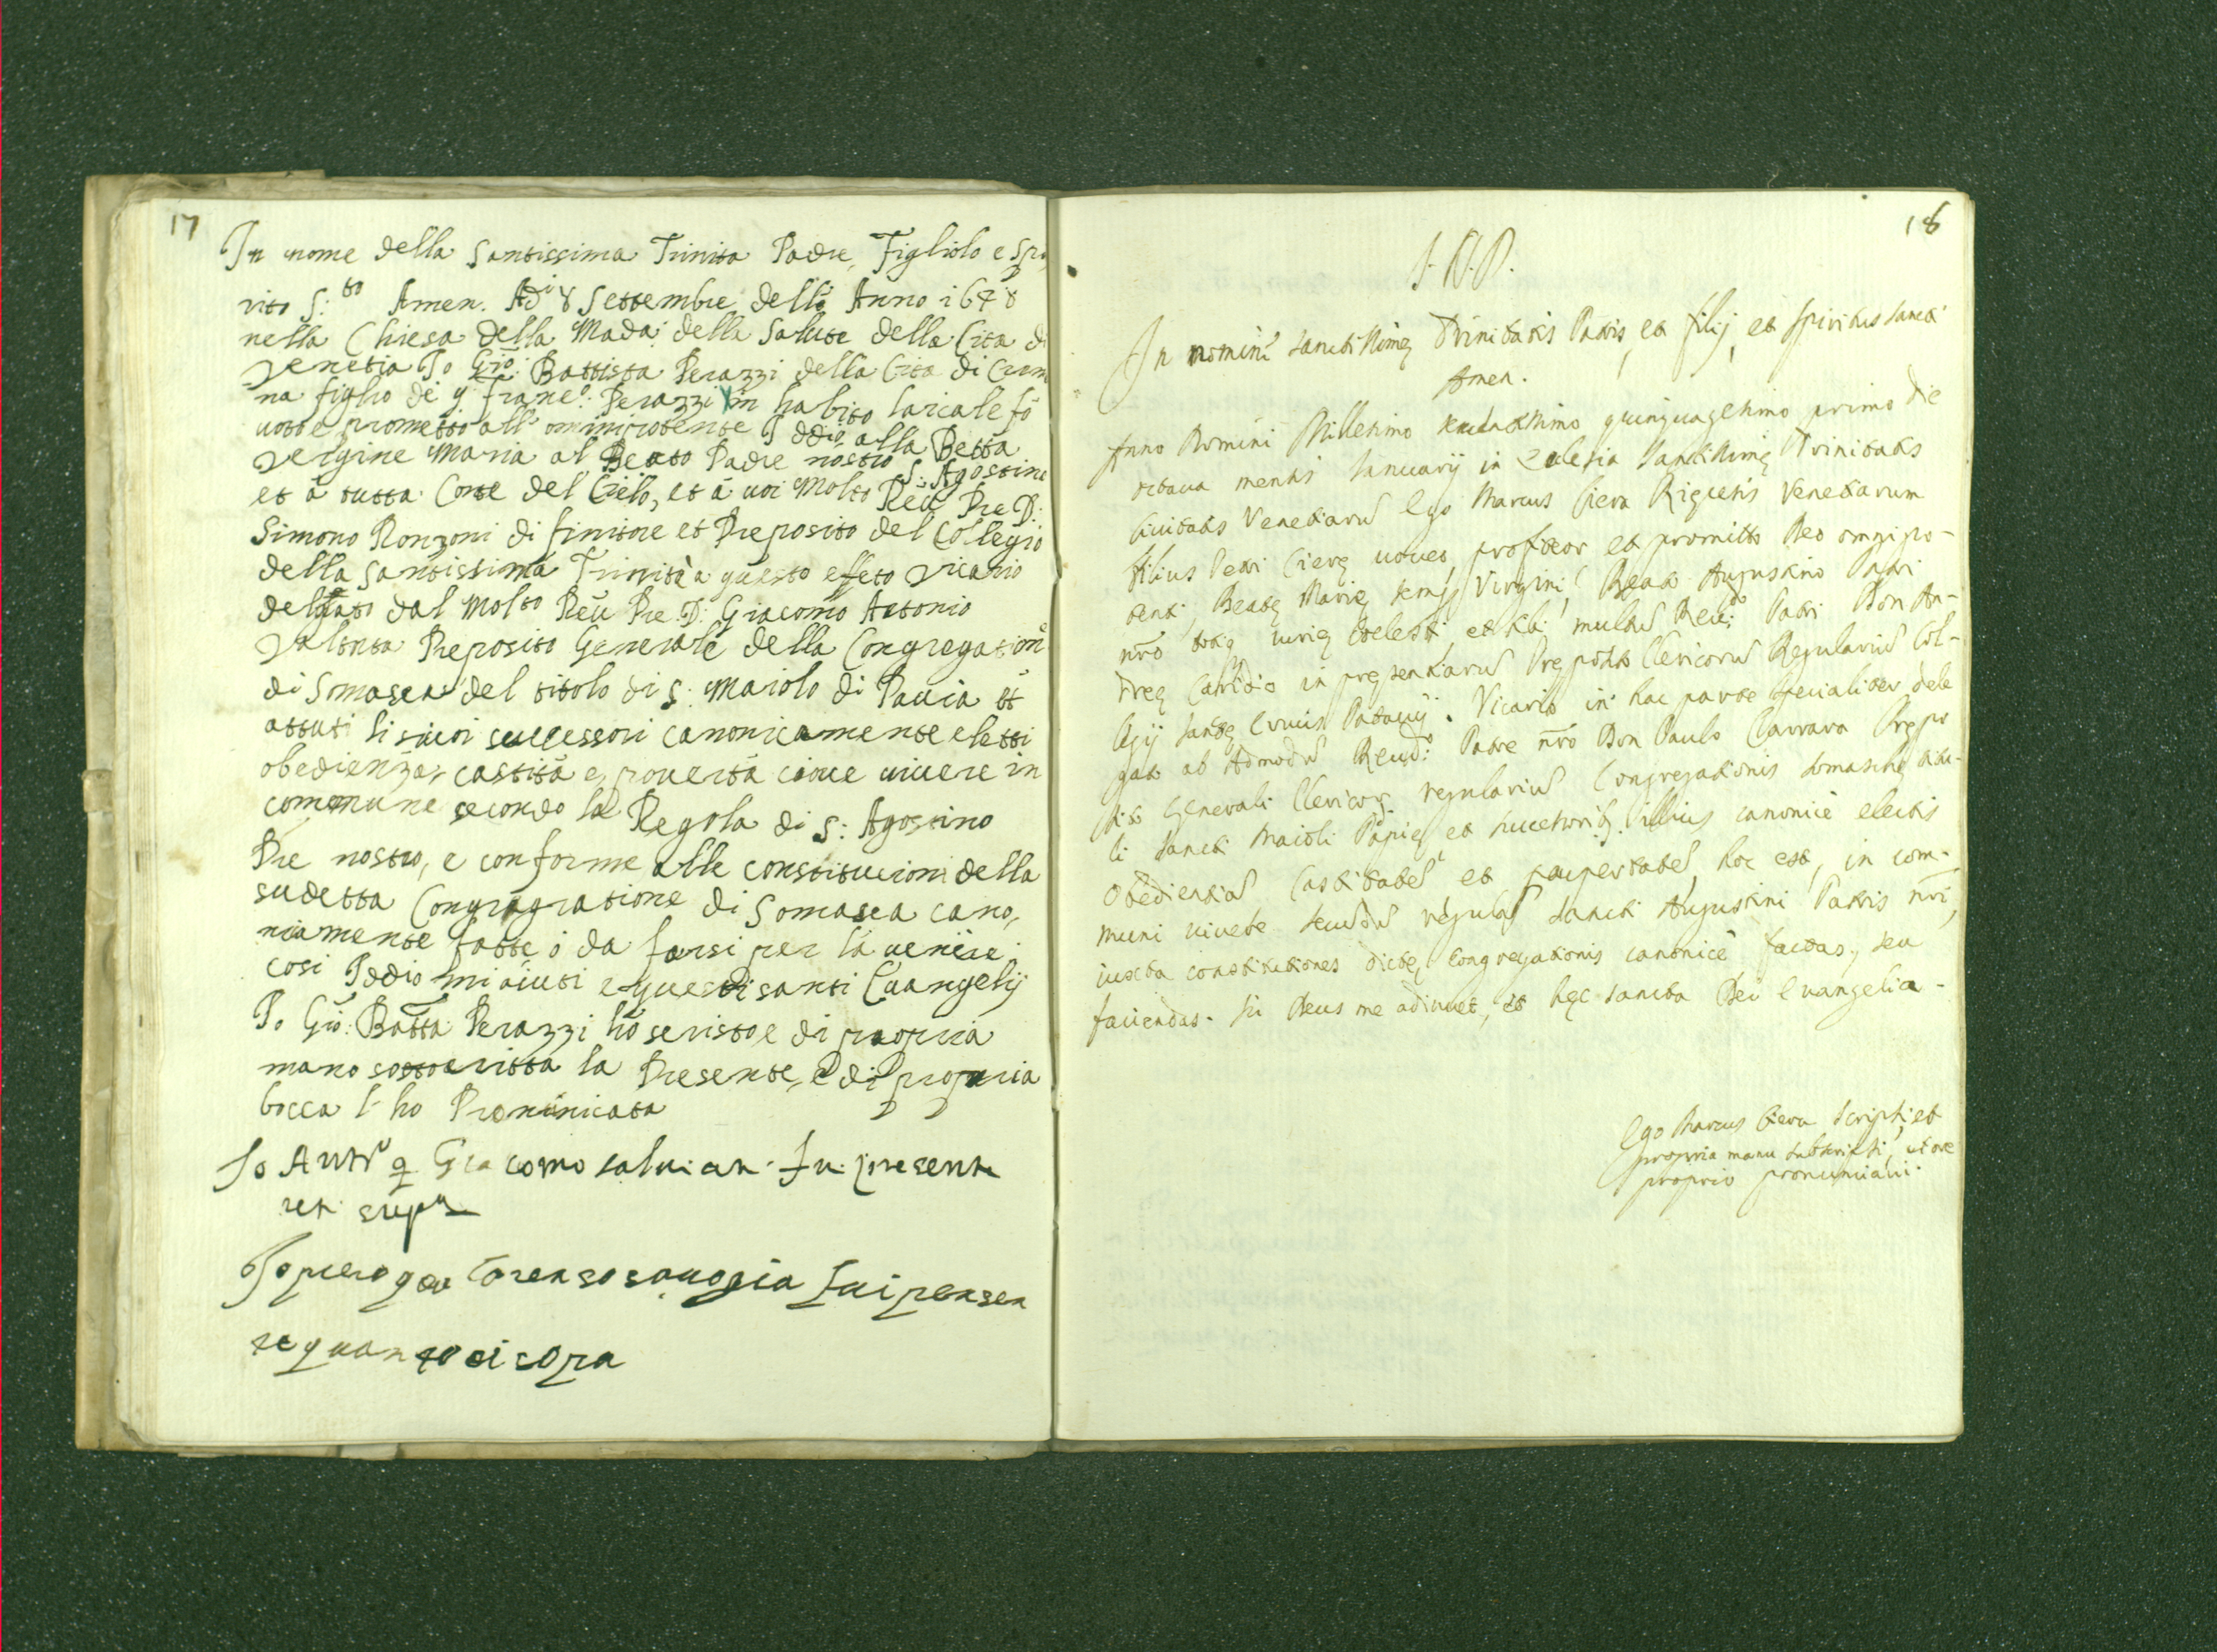 17
In nome della Santissima Trinita Padre, Figliolo e Spi
rito S:to Amen. Adi 8 Settembre dell Anno 1648
nella Chiesa della Mada: della Salute della Cita di
Venetia Io Gio: Battista Perazzi della Cita di Crem
na figlio de q franc: Perazzi in habito laicale fo
voto e prometto all' omnipotente Iddio alla Betta
Vergine Maria al Beato Padre nostro S: Agostino
et à tutta Corte del Cielo, et à voi Molto Reu Pre D:
Simono Ronzoni di finitore et Preposito del Collegio
della Santissima Trinità a questo effeto Vicario
delgato dal Molto Reu Pre D: Giacomo Antonio
Valtnta Preposito Generale della Congregation
di Somasca del titolo di S: Maiolo di Pauia et
attuti li suoi successori canonicamente eletti
obedienza, castità e pouertà cioue uiuere in
commune secondo la Regola di S: Agostino
Pre nostro, e conforme alle constitucioni della
sudetta Congragratione di Somasca cano,
nicamente fatte ò da farsi per la uenire
cosi Iddio mi aiuti e questi santi Euangelij
Io Gio: Batta Perazzi hò scristo e di propria
mano sottoscritta la Presente, e di propria
bocca l'ho Pronunicata
Io Antº q Giacomo saluiati fu presente
ut supª
Io piero q Lorenso fui presen
te quanto di sopra
18
In nomine sanctissimę Trinitatis Patris, et filij, et Spiritus sancti
Amen.
Anno Domini Millesimo sexcentesimo quinquagesimo primo die
octaua mensis Ianuarij in Ecclesia Sanctissimę Trinitatis
Ciuitatis Venetiarū Ego Marcus Ciera Venetiarum
filius Petri Cierę voueo, profiteor et promitto Deo omnipo-
tenti, Beatę Marię semp Virgini, Beato Augustino Patri
nrō totiq curię coelesti et tibi multū Reu: Patri Don An-
dreę in pręsentiarū Pręposito Clericorū Regulariū Col-
legij Sanctę Crucis Patauij. Vicario in hac parte specialiter dele
gato ab Admodū Reudo: Patre nrō Don Paulo Carrara Prępo
sito Generali Clericor regulariū Congregationis somaschę titu-
li Sancti Maioli Papię et successorib illius canonicè electis
Obedientiā Castitatē et paupertatē, hoc est, in com-
muni viuere secudū regulā sancti Augustini Patris nrī,
iuxta constitutiones dictę congregationis canonicè factas, seu
faciendas. Sic Deus me adiuuet, et hęc sancta Dei Euangelia.
Ego Marcus Ciera scripsi et
propria manu subscripsi, et ore
proprio pronunciaui.